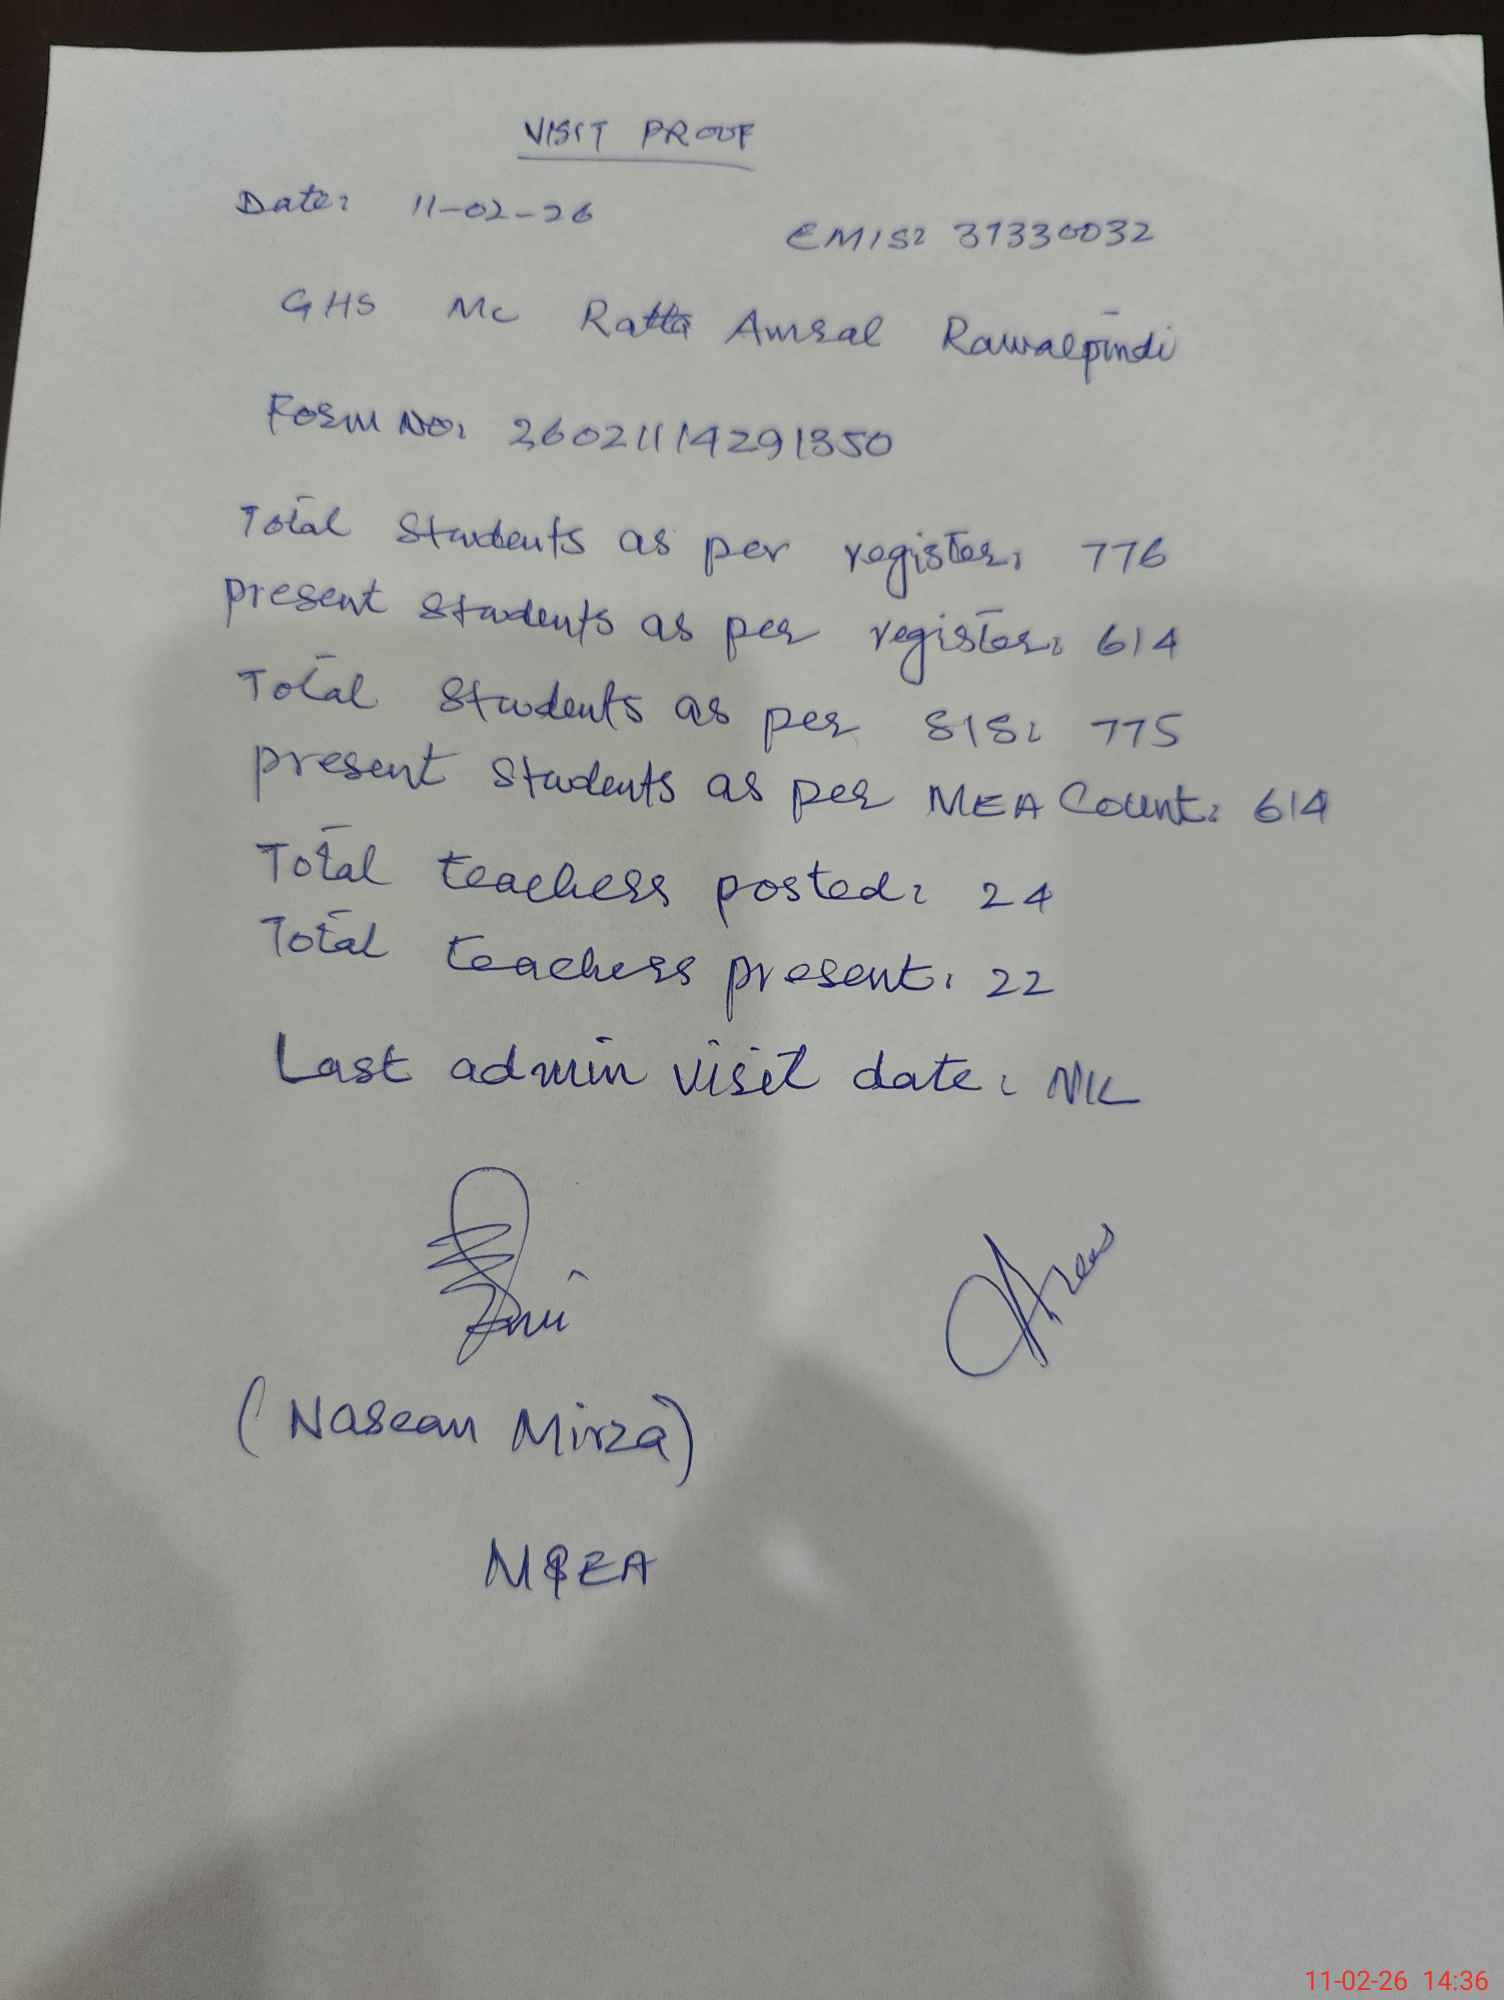 VISIT PROOF
Date: 11-02-26
EMIS: 37330032
GHS Mc Ratta Amral Rawalpindi
Form No: 26021114291350
Total Students as per register: 776
present students as per register: 614
Total Students as per SIS: 775
present Students as per MEA Count: 614
Total teachers posted: 24
Total teachers present: 22
Last admin visit date: NIL
(Naseam Mirza)
MEA
11-02-26 14:36